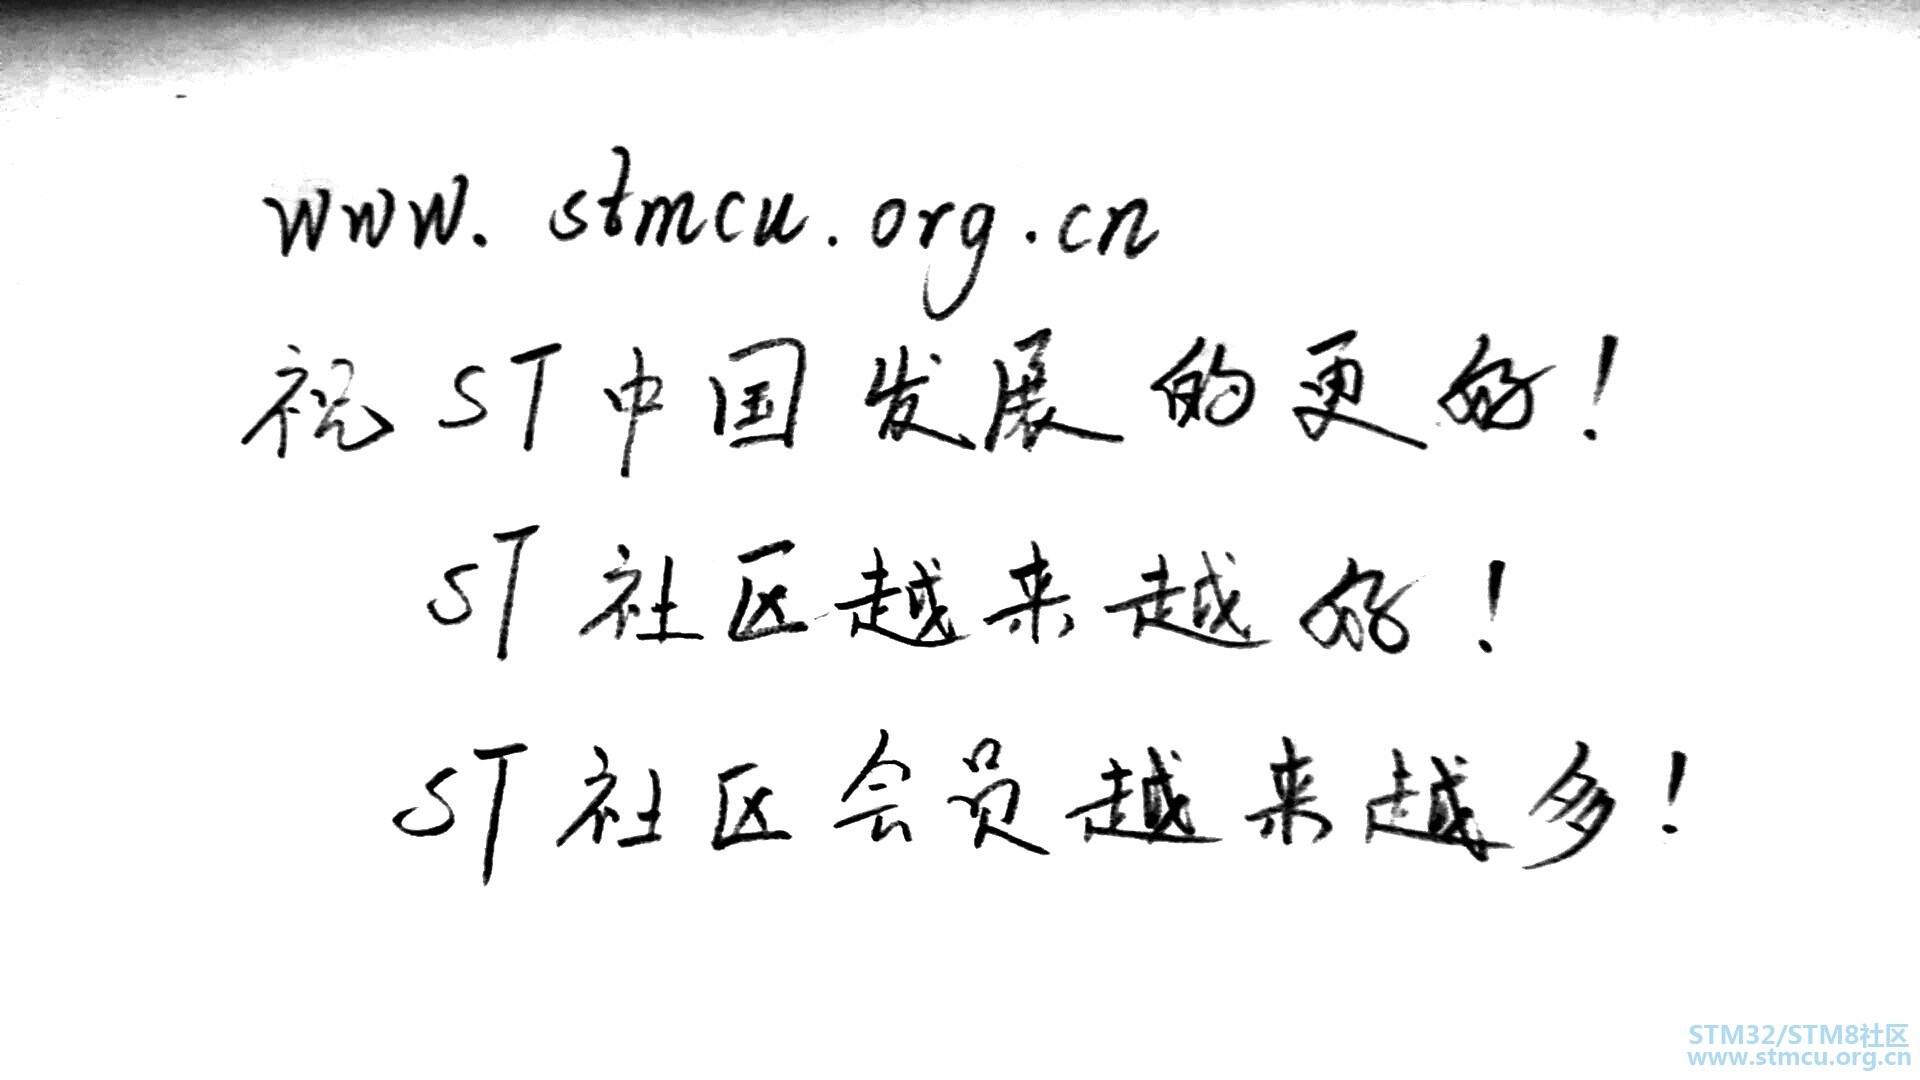 www.stmcu.org.cn
祝ST中国发展的更好!
ST社区越来越好!
ST社区会员越来越多!
STM32/STM8社区
www.stmcu.org.cn